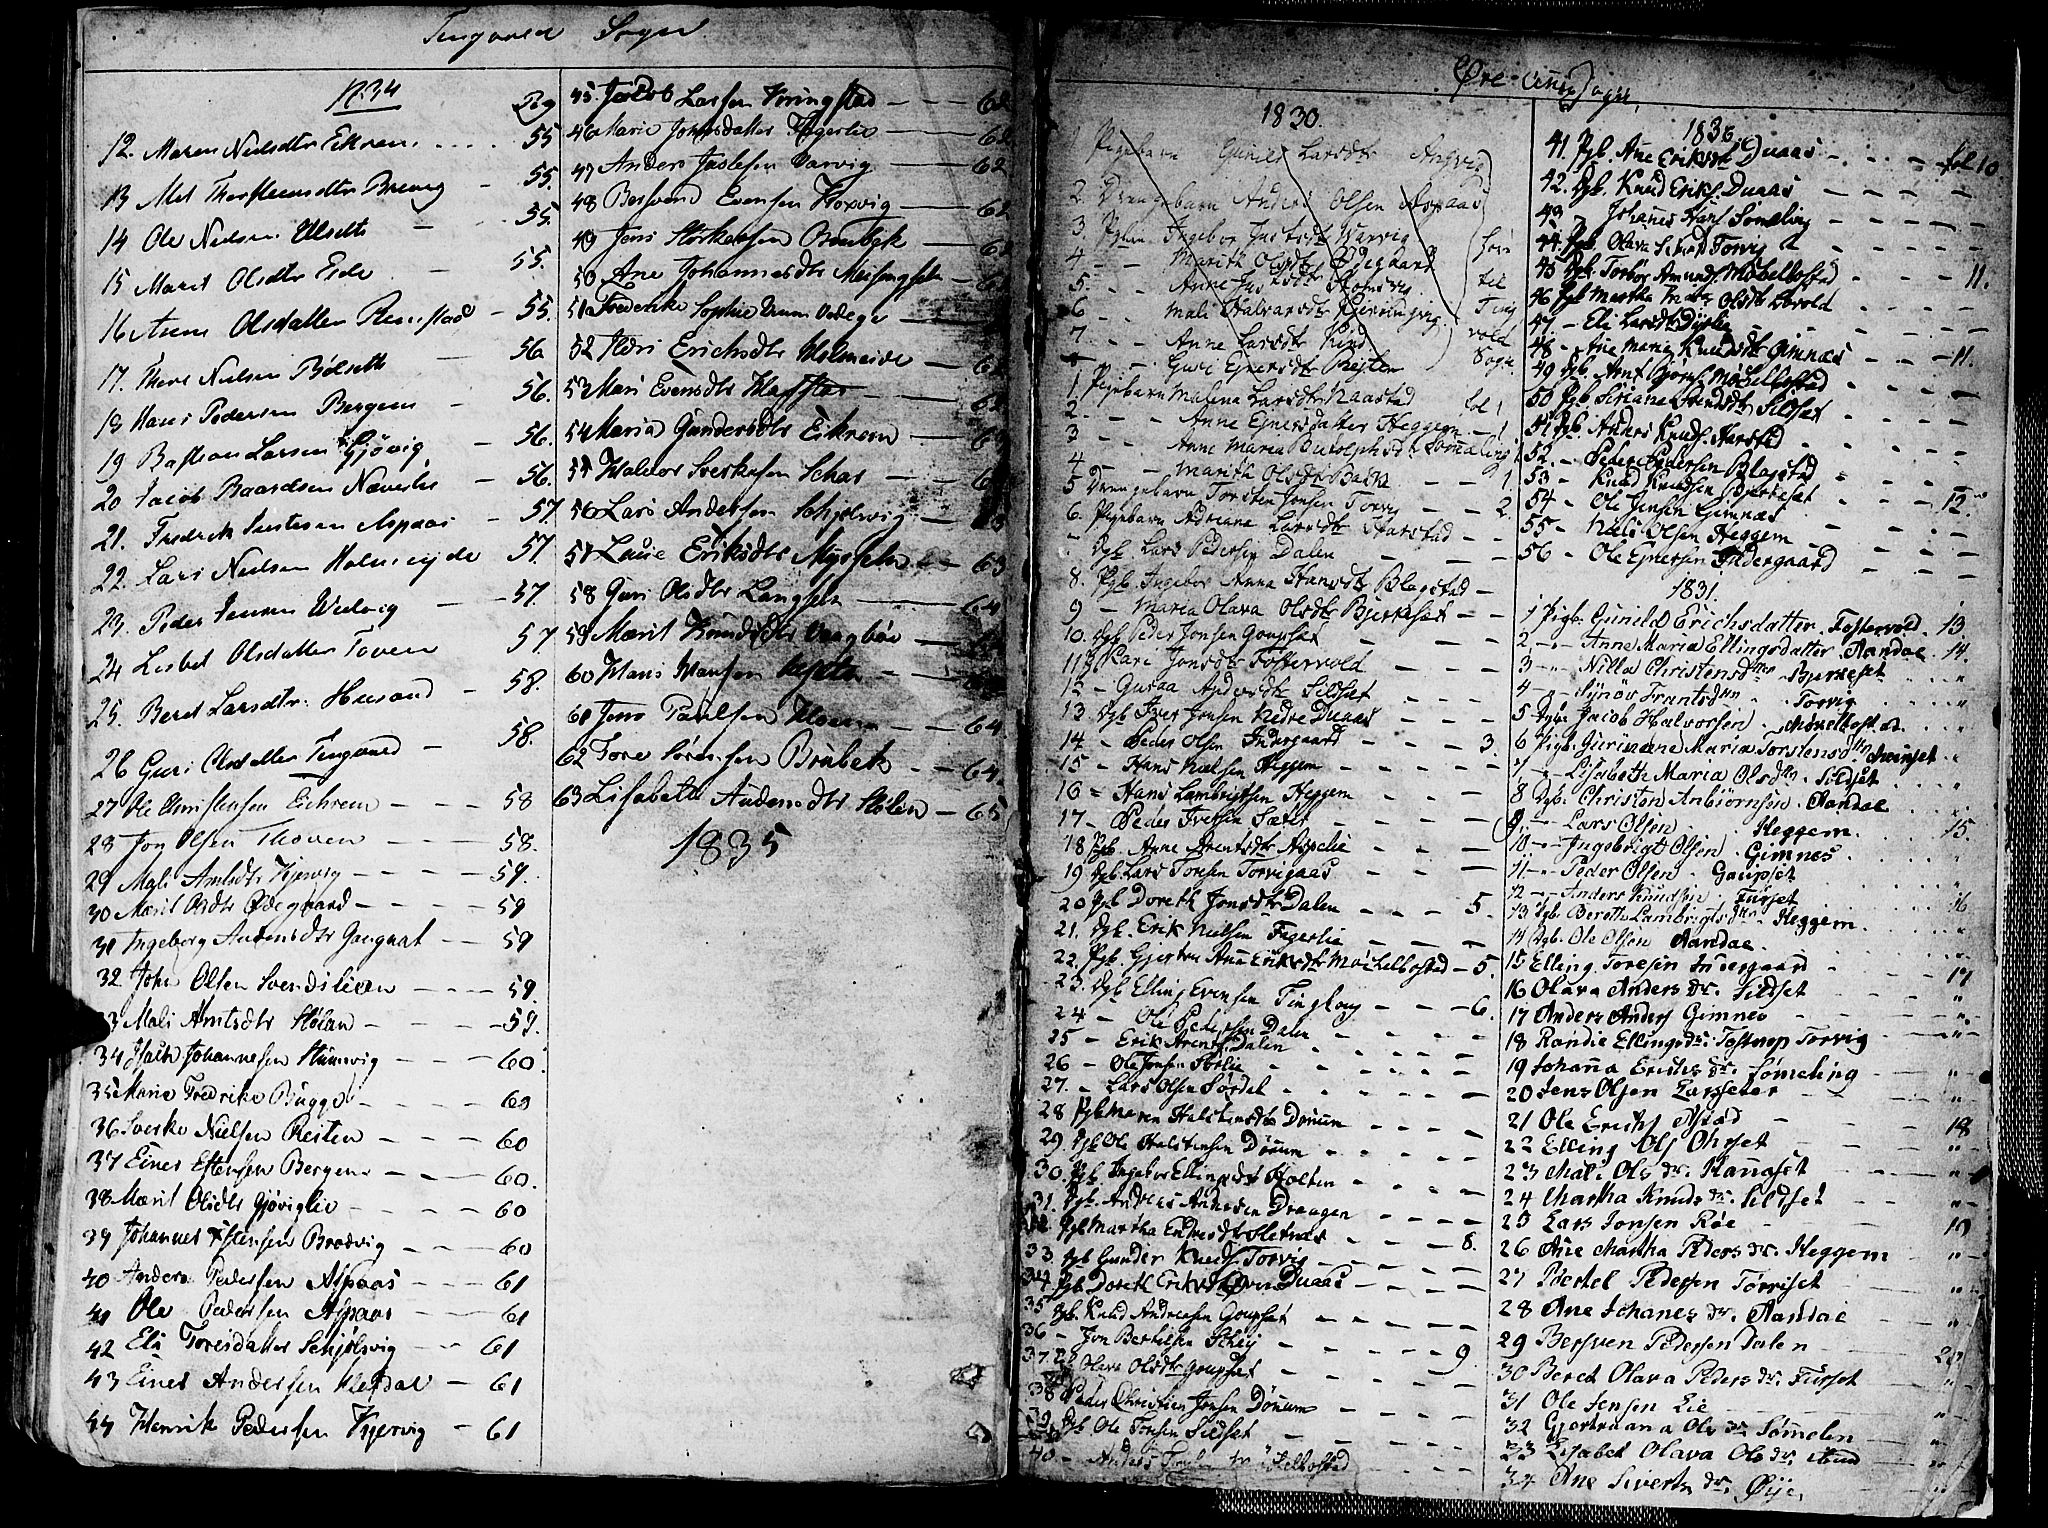 Tingvold Sogn
1834
Pag
12. Maren Nielsdtr Eikrem . . . . 55
13 Met Thorsteensdtr Brevig - 55.
14 Ole Nielsen Ellseth - 55.
15 Marit Olsdtr Eide - 55.
16 Anne Olsdatter Remstad - 55.
17. There Nielsen Bølseth - 56
18 Hans Pedersen Bergem - 56.
19 Bastian Larsen Gjøvig - 56.
20 Jacob Baardsen Næverlie - 56.
21. Fredrik Justesen Aspaas - 57.
22. Lars Nielsen Holmeijde 57.
23. Peder Jensen Wulvig - 57.
24 Lisbet Olsdatter Toven 57
25. Beret Larsdtr. Husand - 58.
26 Guri Olsdatter Tingvold - 58.
27 Ole Christensen Eichrem - - - - 58
28 Jon Olsen Thoven - - - 58.
29 Mali Arntsdtr Kjervig - - - - 59.
30 Marit Olsdtr Ødegaard - - - 59
31 Ingeborg Andersdtr Gaugnat - - 59
32 John Olsen Svendslieen - - - - 59.
33 Mali Arntsdtr Stølan - - - - 59.
34 Isach Johannesen Hamvig - - - 60.
35 Marie Fredrike Bugge - - - - 60
36 Sverke Nielsen Reiten - - - - 60
37 Einer Estensen Bergem - - - 60.
38 Marit Olsdtr Gjøviglie - - - 60
39 Johannes Estensen Brødvig - - - 60
40 Anders Pedersen Aspaas - - - 61
41 Ole Pedersen Aspaas - - - 61
42 Eli Toresdatter Schjølsvig - - - 61
43 Einer Andersen Meisdal - 61
44 Henrik Pedersen Kjervig - 61
45. Jacob Larsen Koringstad - - - 62
46 Marie Johnsdatter Fagerlie - 62
47 Anders Justesen Varvig - 62
48 Bersvend Evensen Koxvig - 62
49 Jens Størkersen Brubek - 62
50 Ane Johannesdtr Meisingseth - 62
51 Frederike Sophie
52 Ildri Erichsdtr Holmeide - 62
53 Mari Evensdtr Kaxstad - 62
54 Maria Gundersdtr Eikrem - 63
55 Haldor Sverkesen Schar - 63
56 Lars Andersen Schjølsvig - 63
57 Laue Eriksdtr Myrseth - 63
58 Guri Olsdtr Langseth - 64
59 Marit Knudsdtr Vaagbøe - 64
60 Hans Hansen
61 Jens Paulsen - 64
62 Tore Sørensen Brubek - - 64.
63 Lisabeth Andersdtr Stølen - 65
1835
Øre Annex Sogn,
1830.
1 Pigebarn Gunild Larsdtr Angvig
2. Drengebarn Anders Olsen Aspaas
3 Pigebn Ingebor Justsdtr Warvig
4 - - Marith Olsdtr Ødegaard
5. - - Anne Justsdtr
6 - - Mali Halvarsdtr Kjerringvig
7 - - Anne Larsdtr Rind
8 - - Guri Ejnersdtr Rejten
hører til Tingvold Sogn
1. Pigebarn Malena Larsdtr Naastad fol 1
2. - - Anne Ejnersdatter Heggem - 1
3 - - Anne Maria Budolphsdtr Sømeling 1
4 - - Marith Olsdtr Bach - - 1.
5 Drengebarn Torsten Jonsen Torvig - - 2.
6. Pigebarn Adriane Larsdtr Harstad - -
7. Dgb Lars Pedersen Dalen - - -
8. Pgb. Ingebor Anna Hansdtr Blagstad -
9 - Maria Olava Olsdtr Bjerkeset - -
10. Dgb Peder Jonsen Goupset - - -
11 Kari Jonsdtr Fostervold - - - -
12 - Guraa Andersdtr Sildset - - - -
13 Dgb Iver Jonsen Nedre Duaas - - -
14. - Peder Olsen Indergaard - - - - 3.
15 - Hans Nielsen Heggem - - - -
16 - Hans Lambrigtsen Heggem - - -
17 - Peder Iversen Sæter - - - -
18 Pgb. Anne Arentsdtr Aspelie - - -
19 Dgb Lars Toresen Torvigaas - - -
20 Pgb Doreth Jonsdtr Dalen - - - 5.
21. Dgb. Erik Nielsen Fagerlie - - - -
22. Pgb. Gjertru Ane Eriksdtr Møchelbostad - 5.
23. Dgb Elling Evensen Tingloug - - - 6.
24 - Ole Pedersen Dalen - - - -
25 - Erik Arentsen Dalen . . . . .
26 - Ole Jonsen Stølie - - - -
27. - Lars Olsen Sørdal - - - -
28 Pgb Maren Halstensdtr Dønum - - - -
29 Dgb Ole Halstensen Dønum - - - -
30. Pgb Ingebor Ellingsdtr Holten - - -
31. Dgb. Andreas Andersen Draagen - - - -
32 Pgb Martha Endresdtr Sletnas - - - 8.
33 Dgb Gunder Knuds. Torvig - - - -
34 Pgb Doreth Eriksdtr Øvre Duaas - - - -
35 Dgb. Knud Andreasen Goupset - - - -
36 - Jon Bertilsen Schej - - - -
37. Pgb Olava Olsdtr Goupset - - - - 9.
38 Peder Christian Jonsen Dønum - - -
39. Dgb Ole Torsen Sildset - - - -
40 - Anders Møchelbostad
1830
41. Pgb. Ane Eriksdtr Duaas - - - - fol 10
42. Dgb. Knud Eriks. Duaas - - - -
43 - Johannes Karls. Sømeling - - - -
44. Pgb. Olava Sivertsdtr Torvig - - - -
45 Dgb. Torbør Amunds. Møchelbostad - - - 11.
46 Pgb Martha Olsdtr Løvold
47. - Eli Larsdtr Dyrlie
48 - Ane Maria Knudsdtr Gimnæs - - - 11.
49 Dgb. Arnt Gjørs. Møchelbostad
50 Pgb Siriane Arendsdtr Sildset
51 Dgb. Anders Knuds. Harstad - - - -
52. - Peder Pedersen Blagstad - - - -
53 - Knud Knudsen Bjerkeset - - - -
54 - Ole Jensen Gimnæs - - - 12.
55 - Niels Olsen Heggem - - - -
56 - Ole Ejnersen Indergaard - - - -
1831.
1 Pigb. Gunild Erichsdatter. Fostervold. 13
2 - " - Anne Maria Ellingsdatter. Aandae. 14.
3 - " - Nilla Christensdttr Bjerkeset
4 - " - Synøv Frantsdttr Torvig
5 Dgb. Jacob Halvorsen . Møkelbostad
6 Pigb. Gurianne Maria Torstensdttr Meinset
7 - " - Lisabeth Maria Olsdttr. Sildset
8 Dgb. Christen Anbiørnsen . Aandae
9. - " - Lars Olsen . Heggem. 15.
10 - " - Ingebrigt Olsen . Gimnes.
11 - " - Peder Olsen . Gaupset
12 - " - Anders Knudsen Furset
13 Pgb. Bereth Lambrigtsdttr Heggem. 16
14 Dgb. Ole Olsen Aandae.
15 Elling Toresen Indergaard - 17
16 Olava Anders dr. Sildset - - "
17 Anders Anders. Gimnes - - "
18 Randie Ellings dr. Tostrup Torvig - "
19 Johanna Erichs dr. Sømeling - - "
20 Jens Olsen Larsseter - - "
21 Ole Erichs. Alstad - 18
22 Elling Ols. Ohrset - - "
23 Mali Ols dr. Hanaset - - "
24 Martha Knuds dr. Sildset - - "
25 Lars Jonsen Røe - - 19
26 Ane Martha Peders dr. Heggem - "
27 Bertel Pedersen Torviset - "
28 Ane Johanes dr. Aandae - "
29 Bersven Pedersen Dalen - - 20
30 Beret Olava Peders dr. Furset - "
31 Ole Jensen Lie - - "
32 Gjertruana Ols dr. Sømelen - "
33 Lisabet Olava Ols dr. - "
34 Ane Siverts dr. Øije.